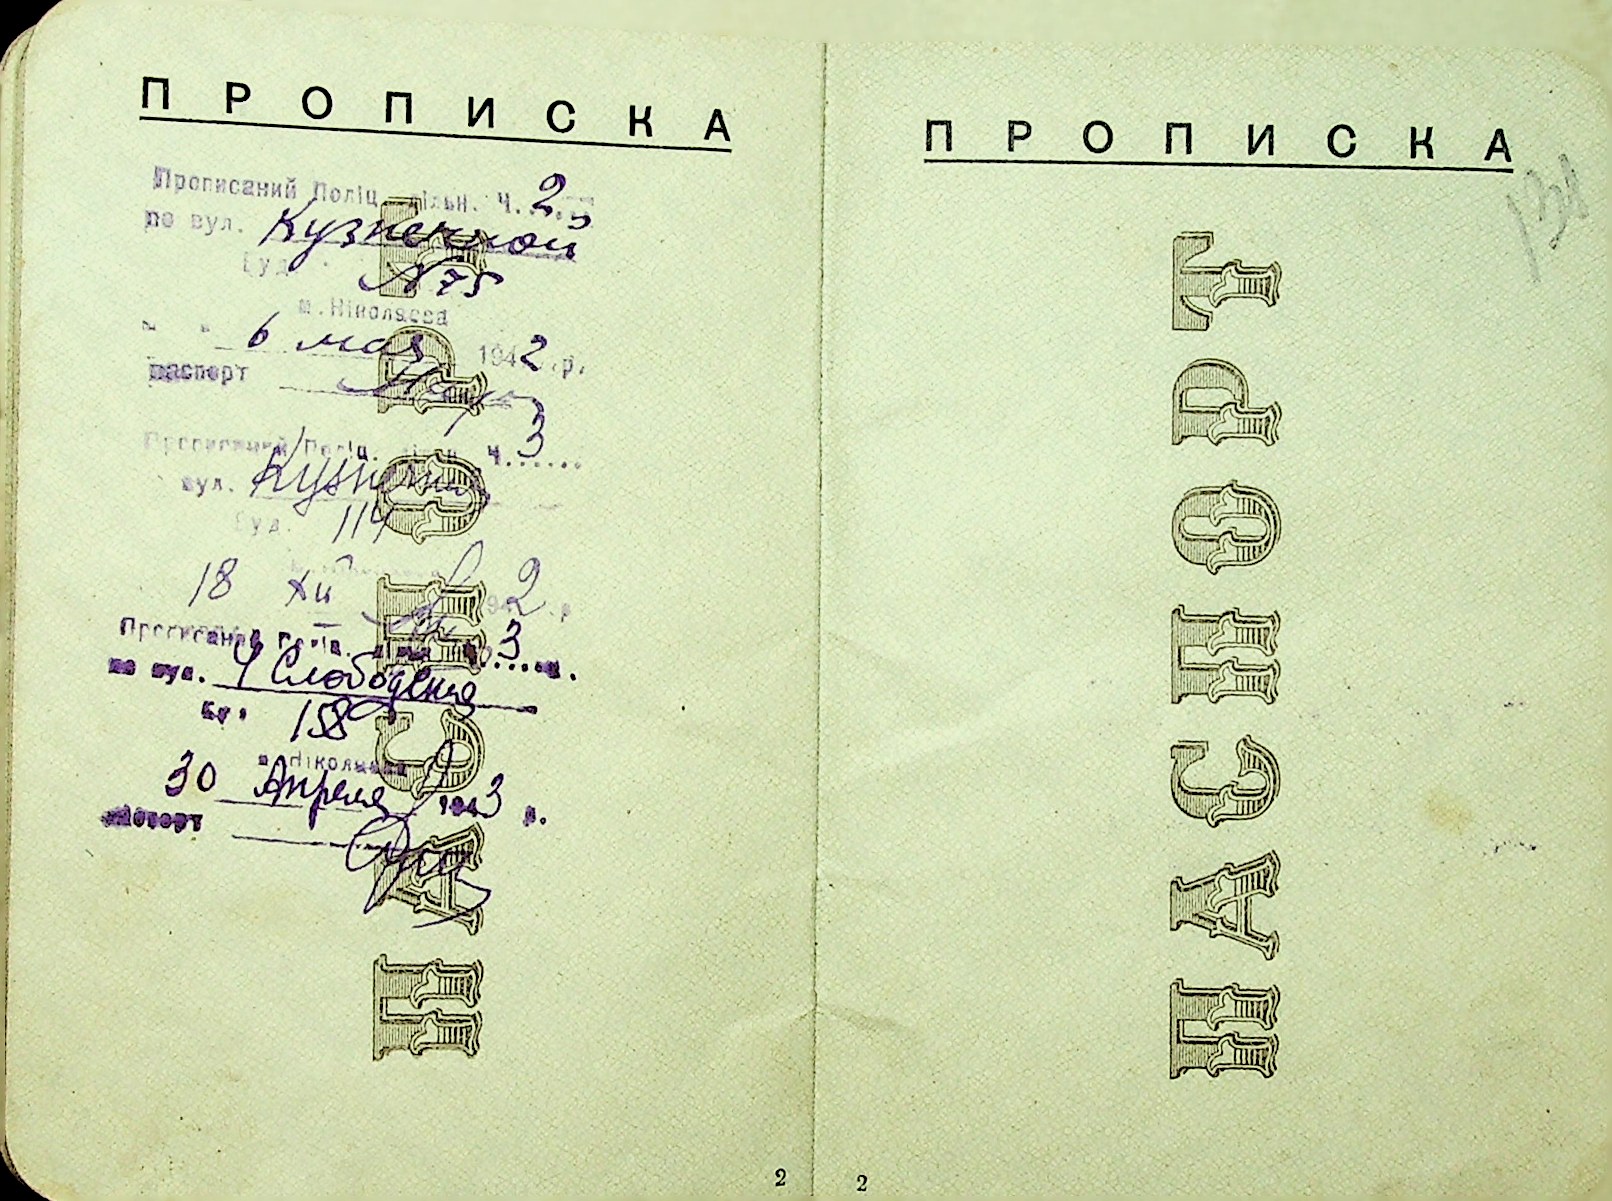 ПРОПИСКА
Прописаний Поліц. дільн. Ч. 2
по вул. Кузнечной
буд. N 75
м. Ніколаєва
6 мая 1942 р.
паспорт
Прописаний Поліц. дільн. Ч. 3
вул.
буд. 114
18 XII 1942 р
Прописаний Поліц. 3
по вул. 4 Слободская
158
м. Ніколаєва
30 Апреля 1943 р.
паспорт
ПАСПОРТ
2
ПРОПИСКА
ПАСПОРТ
2